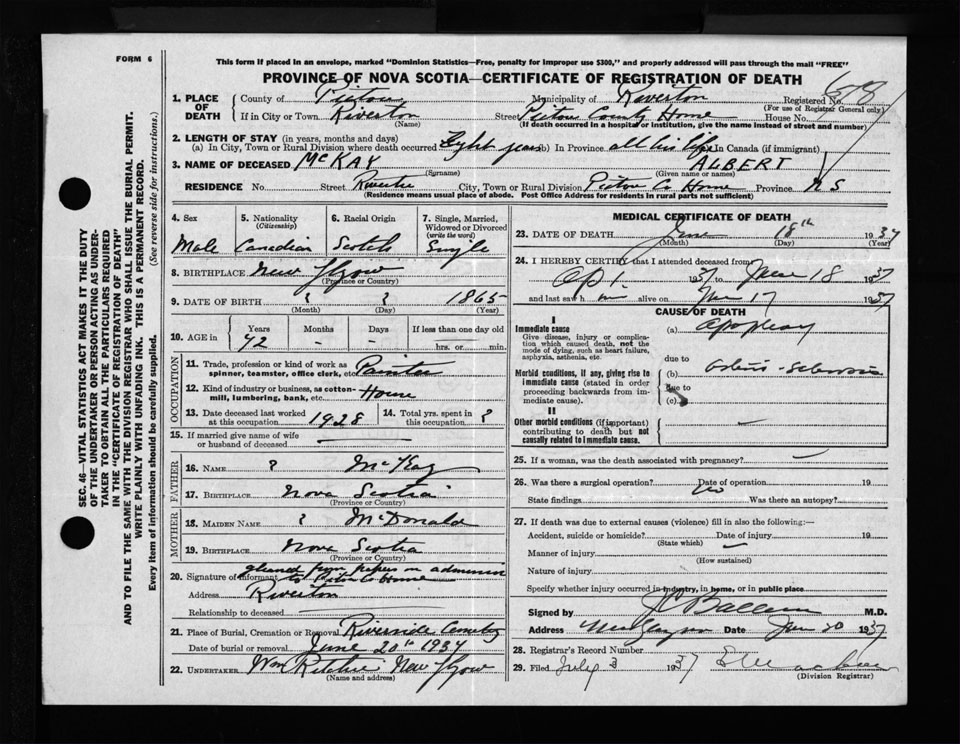 FORM 6
This form if mailed in an envelope, marked "Dominion Statistics—Free, penalty for improper use $300," and properly addressed will pass through the mail "FREE"
PROVINCE OF NOVA SCOTIA—CERTIFICATE OF REGISTRATION OF DEATH
1. PLACE OF DEATH County of Pictou Municipality of Riverton Registered No.
(For use of Registrar General only)
If in City or Town Riverton Street Pictou County Home House No.
(Name) (If death occurred in a hospital or institution, give the name instead of street and number)
2. LENGTH OF STAY (in years, months and days)
(a) In City, Town or Rural Division where death occurred Eight years (b) In Province all his life (c) In Canada (if immigrant)
3. NAME OF DECEASED McKAY ALBERT
(Surname) (Given name or names)
RESIDENCE No. Street Riverton City, Town or Rural Division Pictou Co Home Province N S
(Residence means usual place of abode. Post Office Address for residents in rural parts not sufficient)
4. Sex 5. Nationality (Citizenship) 6. Racial Origin 7. Single, Married, Widowed or Divorced (write the word)
Male Canadian Scotch Single
8. BIRTHPLACE New Glasgow
(Province or Country)
9. DATE OF BIRTH ? ? 1865
(Month) (Day) (Year)
10. AGE in Years Months Days If less than one day old
72 - - hrs. or min.
OCCUPATION
11. Trade, profession or kind of work as spinner, teamster, office clerk, etc. Painter
12. Kind of industry or business, as cotton-mill, lumbering, bank, etc. House
13. Date deceased last worked at this occupation 1928 14. Total yrs. spent in this occupation ?
15. If married give name of wife or husband of deceased
FATHER
16. NAME ? McKay
17. BIRTHPLACE Nova Scotia
(Province or Country)
MOTHER
18. MAIDEN NAME ? McDonald
19. BIRTHPLACE Nova Scotia
(Province or Country)
gleaned from papers on admission
20. Signature of informant to Pictou Co Home
Address Riverton
Relationship to deceased
21. Place of Burial, Cremation or Removal Riverside Cemetery
Date of burial or removal June 20th 1937
22. UNDERTAKER Wm Ritchie New Glasgow
(Name and address)
MEDICAL CERTIFICATE OF DEATH
23. DATE OF DEATH June 18th 1937
(Month) (Day) (Year)
24. I HEREBY CERTIFY that I attended deceased from
Ap 1 1937 to June 18 1937
and last saw h im alive on June 17 1937
CAUSE OF DEATH
I
Immediate cause (a) Apoplexy
Give disease, injury or complication which caused death, not the mode of dying, such as heart failure, asphyxia, asthenia, etc.
due to
Morbid conditions, if any, giving rise to immediate cause (stated in order proceeding backwards from immediate cause). (b) Arterio-Sclerosis
due to
(c)
II
Other morbid conditions (if important) contributing to death but not causally related to immediate cause.
25. If a woman, was the death associated with pregnancy?
26. Was there a surgical operation? No Date of operation 19
State findings Was there an autopsy?
27. If death was due to external causes (violence) fill in also the following:—
Accident, suicide or homicide? Date of injury 19
(State which)
Manner of injury
(How sustained)
Nature of injury
Specify whether injury occurred in industry, in home, or in public place
Signed by M.D.
Address New Glasgow Date June 20 1937
28. Registrar's Record Number
29. Filed July 3 1937
(Division Registrar)
SEC. 46—VITAL STATISTICS ACT MAKES IT THE DUTY
OF THE UNDERTAKER OR PERSON ACTING AS UNDER-
TAKER TO OBTAIN ALL THE PARTICULARS REQUIRED
IN THE "CERTIFICATE OF REGISTRATION OF DEATH"
AND TO FILE THE SAME WITH THE DIVISION REGISTRAR WHO SHALL ISSUE THE BURIAL PERMIT.
WRITE PLAINLY WITH UNFADING INK. THIS IS A PERMANENT RECORD.
Every item of information should be carefully supplied. (See reverse side for instructions.)